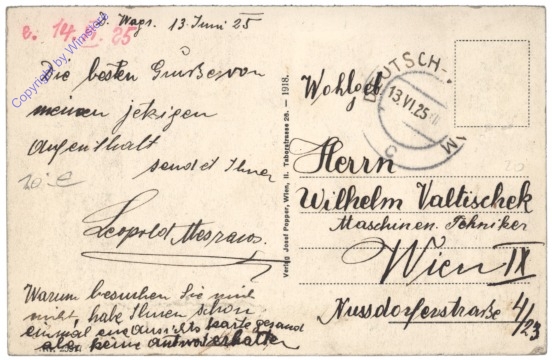 e. 14. VI. 25
d. Wagr. 13 Juni 25
Copyright by Wimslertr
Die besten Grüße von
meinen jetzigen
Aufenthalt
sendet Ihnen
Leopold
Warum besuchen Sie mich
nicht, habe Ihnen schon
einmal eine Ansichtskarte gesand
aber keine Antwort erhalten
Verlag Josef Popper, Wien, II. Taborstrasse 26. — 1918.
DEUTSCH-WAGRAM
13.VI.25
Wohlgeb
Herrn
Wilhelm Valtischek
Maschinen Tehniker
Wien IX
Nussdorferstraße 4/23